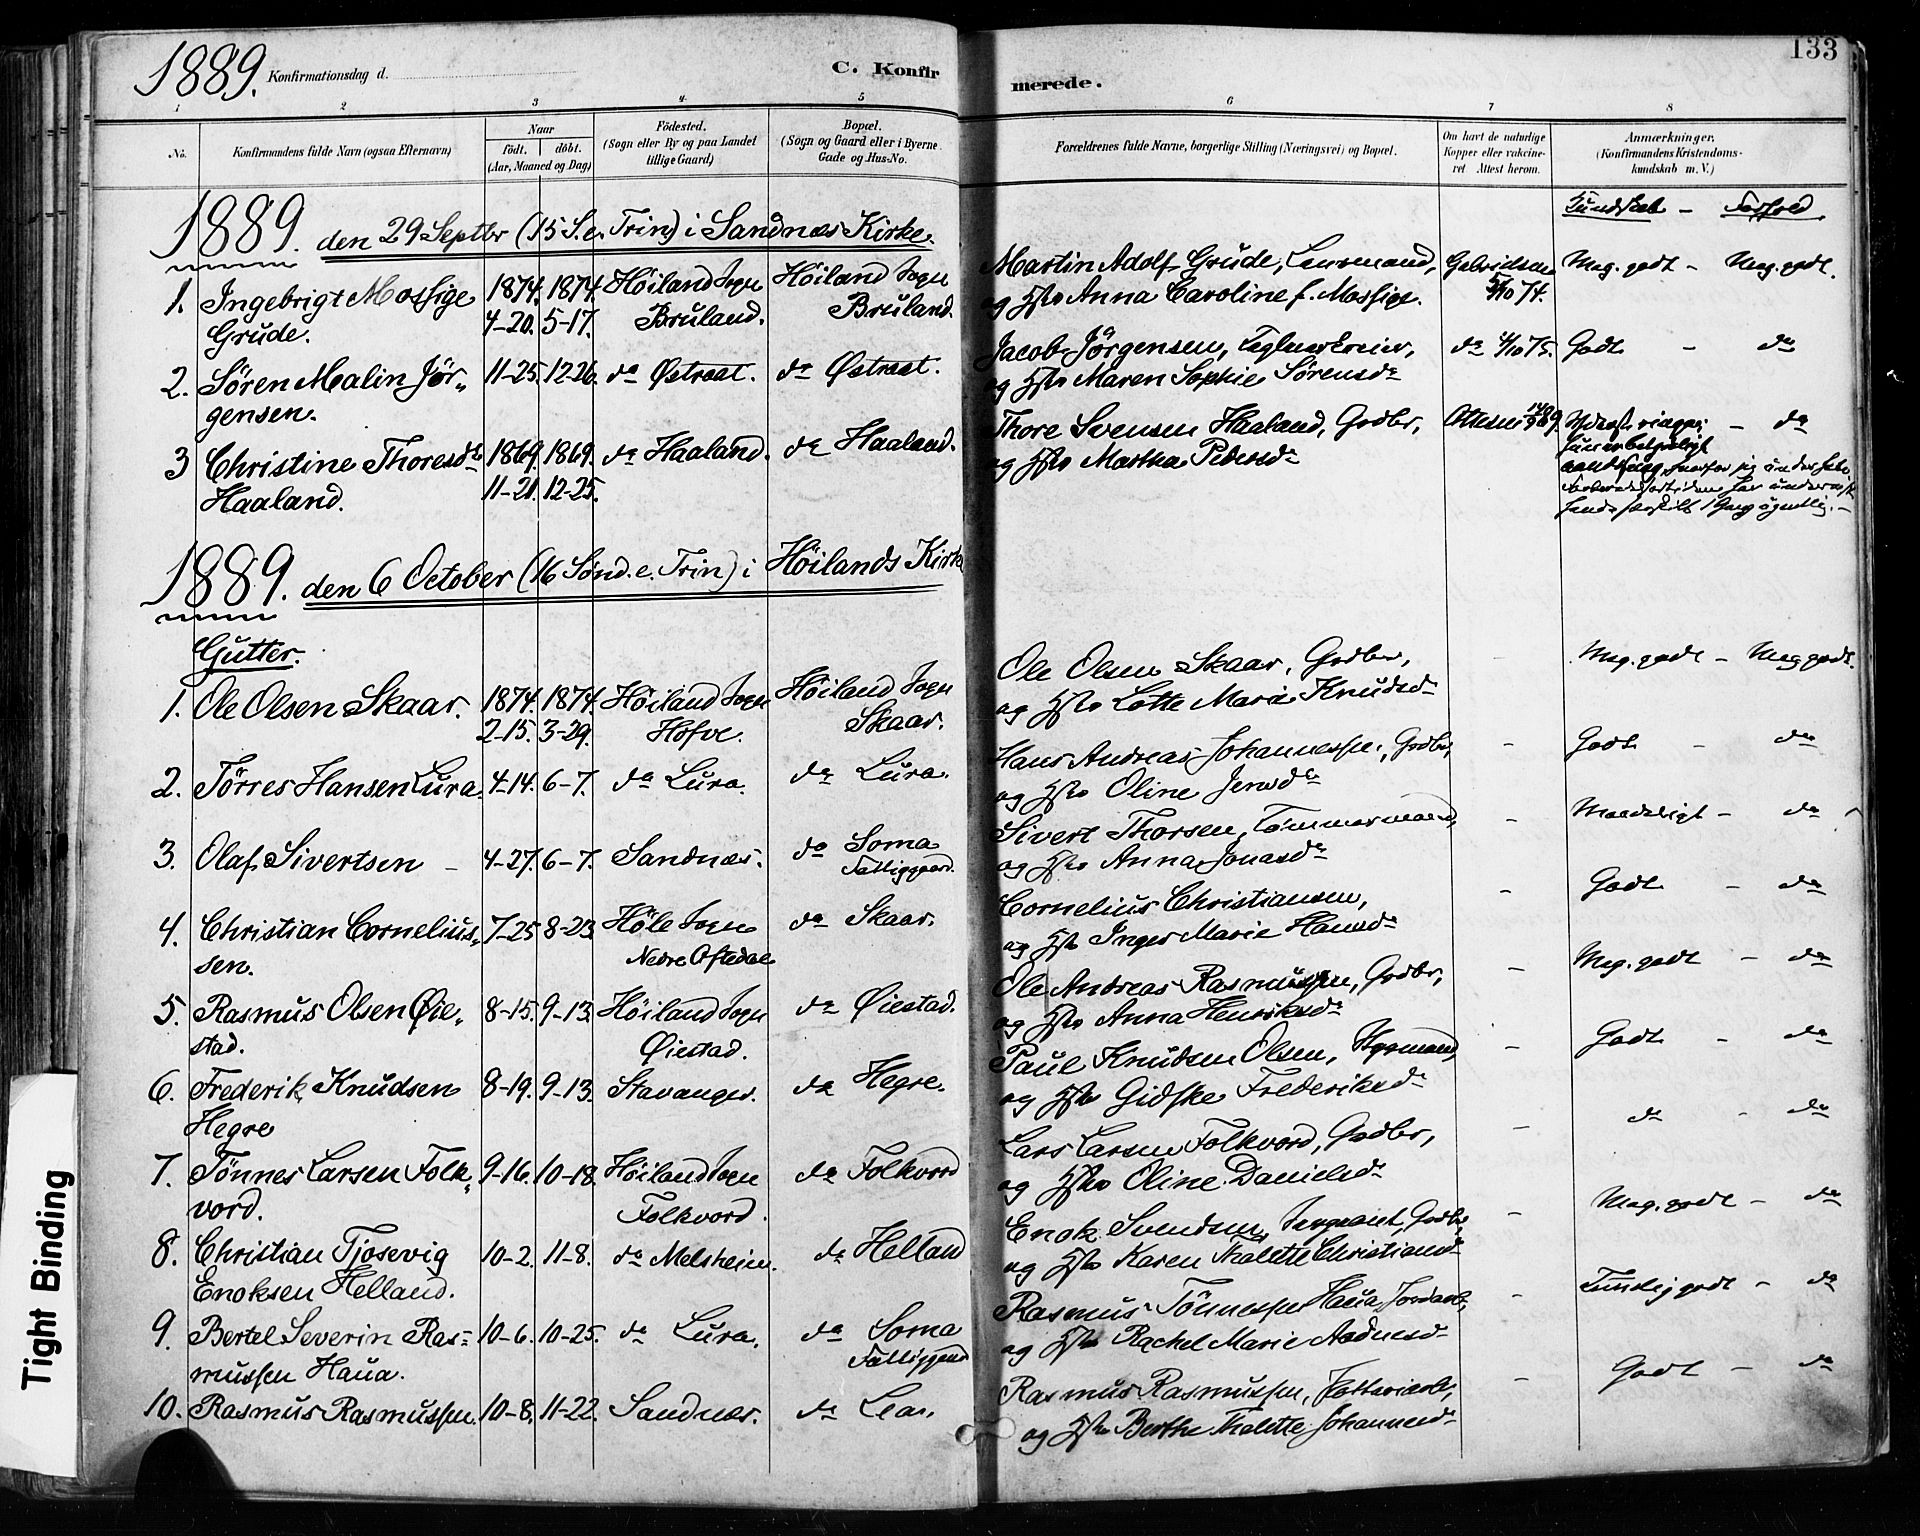 1889. Konfirmationsdag d. C. Konfirmerede. 133
1 2 3 4 5 6 7 8
No. Konfirmandens fulde Navn (ogsaa Efternavn)
Naar
födt. döbt.
(Aar, Maaned og Dag)
Födested.
(Sogn eller By og paa Landet
tillige Gaard)
Bopæl.
(Sogn og Gaard eller i Byerne
Gade og Hus-No.
Forældrenes fulde Navne, borgerlige Stilling (Næringsvei) og Bopæl.
Om havt de naturlige
Kopper eller vakcine-
ret Attest herom.
Anmærkninger,
(Konfirmandens Kristendoms-
kundskab m. V.)
Kundskab - Forhold
1889. den 29 Septbr (15 S. e. Trin) i Sandnæs Kirke.
1. Ingebrigt Mossige 1874. 1874. Höiland Sogn Höiland Sogn Martin Adolf Grude, Lensmand, Gabrielsen Meg. godt - Meg. godt.
Grude. 4-20. 5-17. Bruland. Bruland. og Hst Anna Caroline f. Mossige.
2. Søren Malin Jör- 11-25. 12-26. do Østraat. do Østraat. Jacob Jörgensen, Teglværkseier, do Godt - do
gensen. og Hst Maren Sophie Sørensdr
3 Christine Thoresdr 1869. 1869. do Haaland. do Haaland. Thore Svensen Haaland, Grdbr, - do
Haaland. 11-21. 12-25. og Hst Martha Pedersd
1889. den 6 October (16 Sønd. e. Trin) i Höilands Kirke
Gutter.
1. Ole Olsen Skaar. 1874. 1874. Höiland Sogn Höiland Sogn Ole Olsen Skaar, Grdbr, - Meg. godt - Meg godt.
2-15. 3-29. Hofve. Skaar. og Hst Lotte Marie Knudsd
2. Törres Hansen Lura. 4-14. 6-7. do Lura. do Lura. Hans Andreas Johannessen, Grdbr, - Godt - do
og Hst Oline Jensd
3. Olaf Sivertsen - 4-27. 6-7. Sandnæs. do Soma Sivert Thorsen, Tömmermand, - Maadeligt - do
Fattiggaard. og Hst Anna Jonasd
4. Christian Cornelius- 7-25 8-23. Höle Sogn do Skaar. Cornelius Christiansen, - Godt - do
sen. Nedre Oftedal og Hst Inger Marie Hansd
5. Rasmus Olsen Øie- 8-15. 9-13. Höiland Sogn do Øiestad. Ole Andreas Rasmussen, Grdbr, - Meg. godt - do
stad. Øiestad. og Hst Anna Henriksd
6. Frederik Knudsen 8-19. 9-13. Stavanger. do Hegre. Paul Knudsen Olsen, Styrmand, - Godt - do
Hegre og Hst Gidske Frederiksd
7. Tönnes Larsen Folk- 9-16. 10-18. Höiland Sogn do Folkvord Lars Larsen Folkvord, Grdbr, - do - do
vord. Folkvord. og Hst Oline Danielsd
8. Christian Tjosevig 10-2. 11-8. do Melsheim. do Helland Enok Svendsen, Sergeant, Grdbr, - Meg. godt - do
Enoksen Helland. og Hst Karen Malette Christiansd
9. Bertel Severin Ras- 10-6. 10-25. do Lura. do Soma Rasmus Tönnessen Haua, - Temelig godt - do
mussen Haua. Fattiggaard og Hst Rachel Marie Aadnesd
10. Rasmus Rasmussen. 10-8. 11-22. Sandnæs. do Lea. Rasmus Rasmussen, - Godt - do
og Hst Berthe Malette Johannesd
Tight Binding